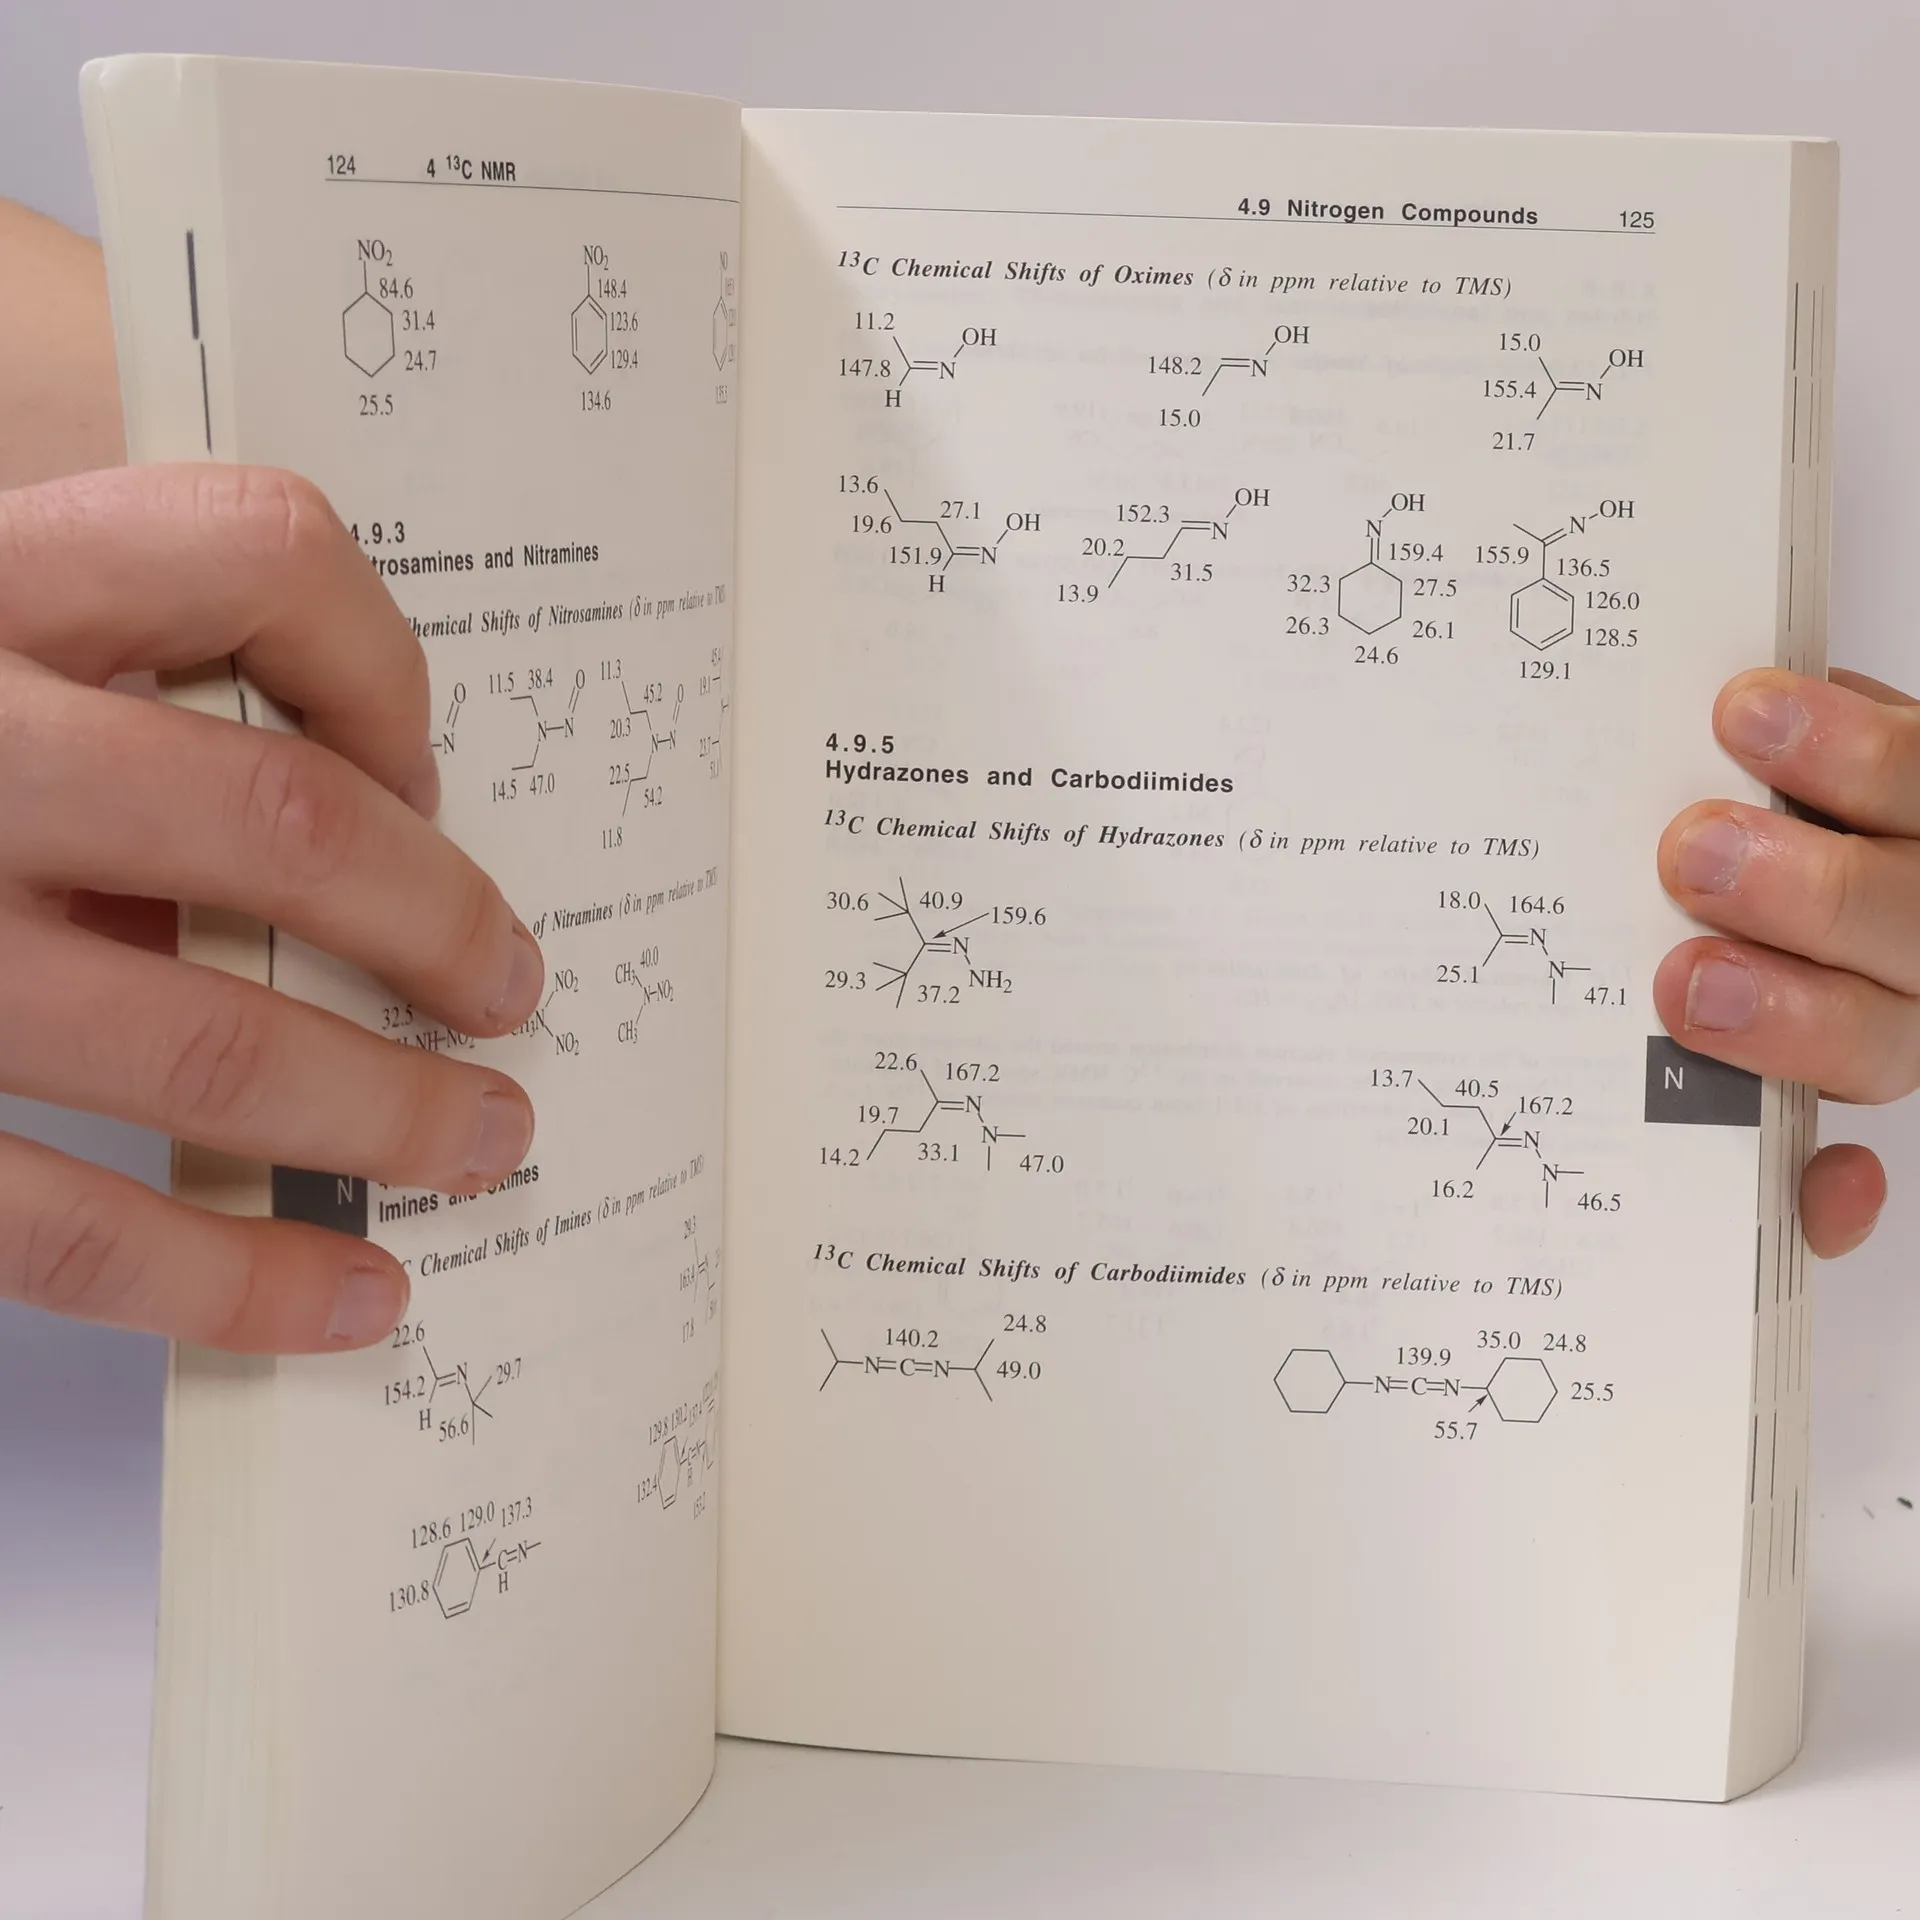 124 4 ¹³C NMR
NO₂
84.6
31.4
24.7
25.5
NO₂
148.4
123.6
129.4
134.6
NO
4.9.3
trosamines and Nitramines
hemical Shifts of Nitrosamines (δ in ppm relative to TMS
O
N
11.5 38.4 O
N N
14.5 47.0
11.3
45.2 O
20.3
N N
22.5
54.2
11.8
of Nitramines (δ in ppm relative to TMS
32.5
NH-NO₂
NO₂
NO₂
CH₃ 40.0
N-NO₂
CH₃
N
Imines and Oximes
C Chemical Shifts of Imines (δ in ppm relative to TMS)
22.6
154.2 N 29.7
H 56.6
29.3
163.4
17.8
128.6 129.0 137.3
C=N
130.8 H
129.8 130.2
132.4
H
4.9 Nitrogen Compounds 125
¹³C Chemical Shifts of Oximes (δ in ppm relative to TMS)
11.2
OH
147.8 N
H
OH
148.2 N
15.0
15.0
OH
155.4 N
21.7
13.6
27.1 OH
19.6
151.9 N
H
OH
152.3 N
20.2
31.5
13.9
OH
N
159.4
32.3 27.5
26.3 26.1
24.6
OH
N
155.9 136.5
126.0
128.5
129.1
4.9.5
Hydrazones and Carbodiimides
¹³C Chemical Shifts of Hydrazones (δ in ppm relative to TMS)
30.6 40.9
159.6
N
29.3 37.2 NH₂
18.0 164.6
N
25.1 N
47.1
N
22.6 167.2
N
19.7
N
14.2 33.1 47.0
13.7 40.5
167.2
20.1 N
N
16.2 46.5
¹³C Chemical Shifts of Carbodiimides (δ in ppm relative to TMS)
140.2 24.8
N=C=N 49.0
139.9 35.0 24.8
N=C=N 25.5
55.7